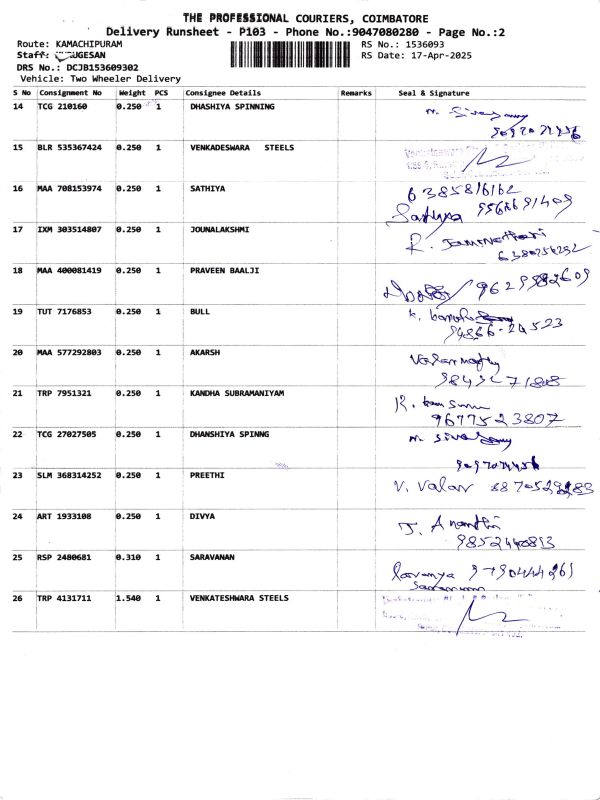 THE PROFESSIONAL COURIERS, COIMBATORE
Delivery Runsheet - P103 - Phone No.:9047080280 - Page No.:2
Route: KAMACHIPURAM RS No.: 1536093
Staff: UGESAN RS Date: 17-Apr-2025
DRS No.: DCJB153609302
Vehicle: Two Wheeler Delivery
S No Consignment No Weight PCS Consignee Details Remarks Seal & Signature
14 TCG 210160 0.250 1 DHASHIYA SPINNING
15 BLR 535367424 0.250 1 VENKADESWARA STEELS
16 MAA 708153974 0.250 1 SATHIYA 6385816162
Sathiya 9566691409
17 IXM 303514807 0.250 1 JOUNALAKSHMI R.
6380256292
18 MAA 400081419 0.250 1 PRAVEEN BAALJI
19 TUT 7176853 0.250 1 BULL K.
94866-24523
20 MAA 577292803 0.250 1 AKARSH
21 TRP 7951321 0.250 1 KANDHA SUBRAMANIYAM K.
9677523807
22 TCG 27027505 0.250 1 DHANSHIYA SPINNG M.
23 SLM 368314252 0.250 1 PREETHI V. Valar
24 ART 1933108 0.250 1 DIVYA J. Ananthi
25 RSP 2480681 0.310 1 SARAVANAN Lavanya 9790444261
26 TRP 4131711 1.540 1 VENKATESHWARA STEELS